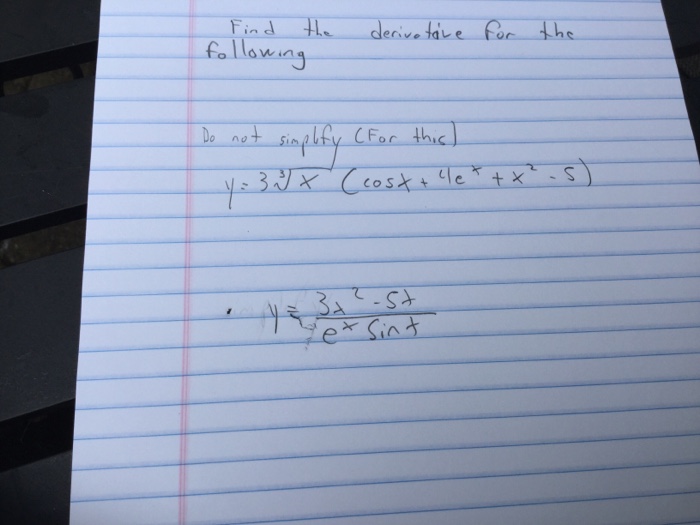 Find the derivative for the
following
Do not simplfy (For this)
y = 3∛x (cosx + 4e^x + x² - 5)
y = (3x² - 5x) / (e^x sinx)